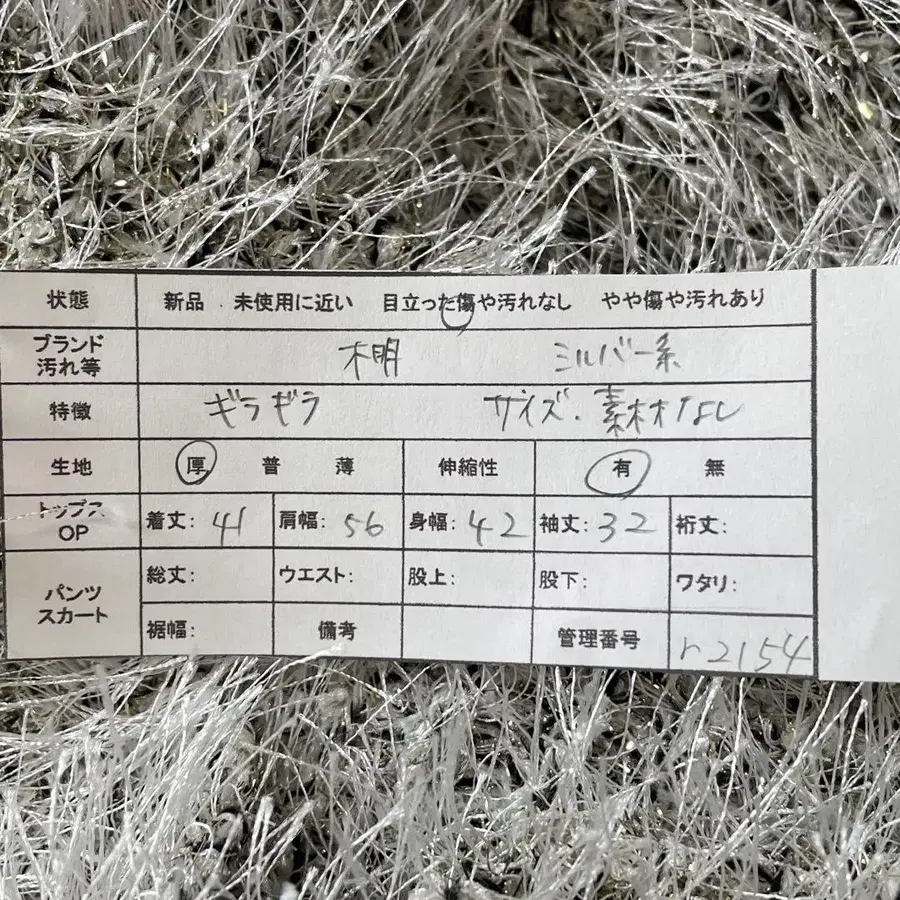 状態 新品 未使用に近い 目立った傷や汚れなし やや傷や汚れあり
ブランド
汚れ等 シルバー系
特徴 ギラギラ サイズ・素材なし
生地 厚 普 薄 伸縮性 有 無
トップス
OP 着丈: 41 肩幅: 56 身幅: 42 袖丈: 32 裄丈:
パンツ
スカート 総丈: ウエスト: 股上: 股下: ワタリ:
裾幅: 備考 管理番号 r2154